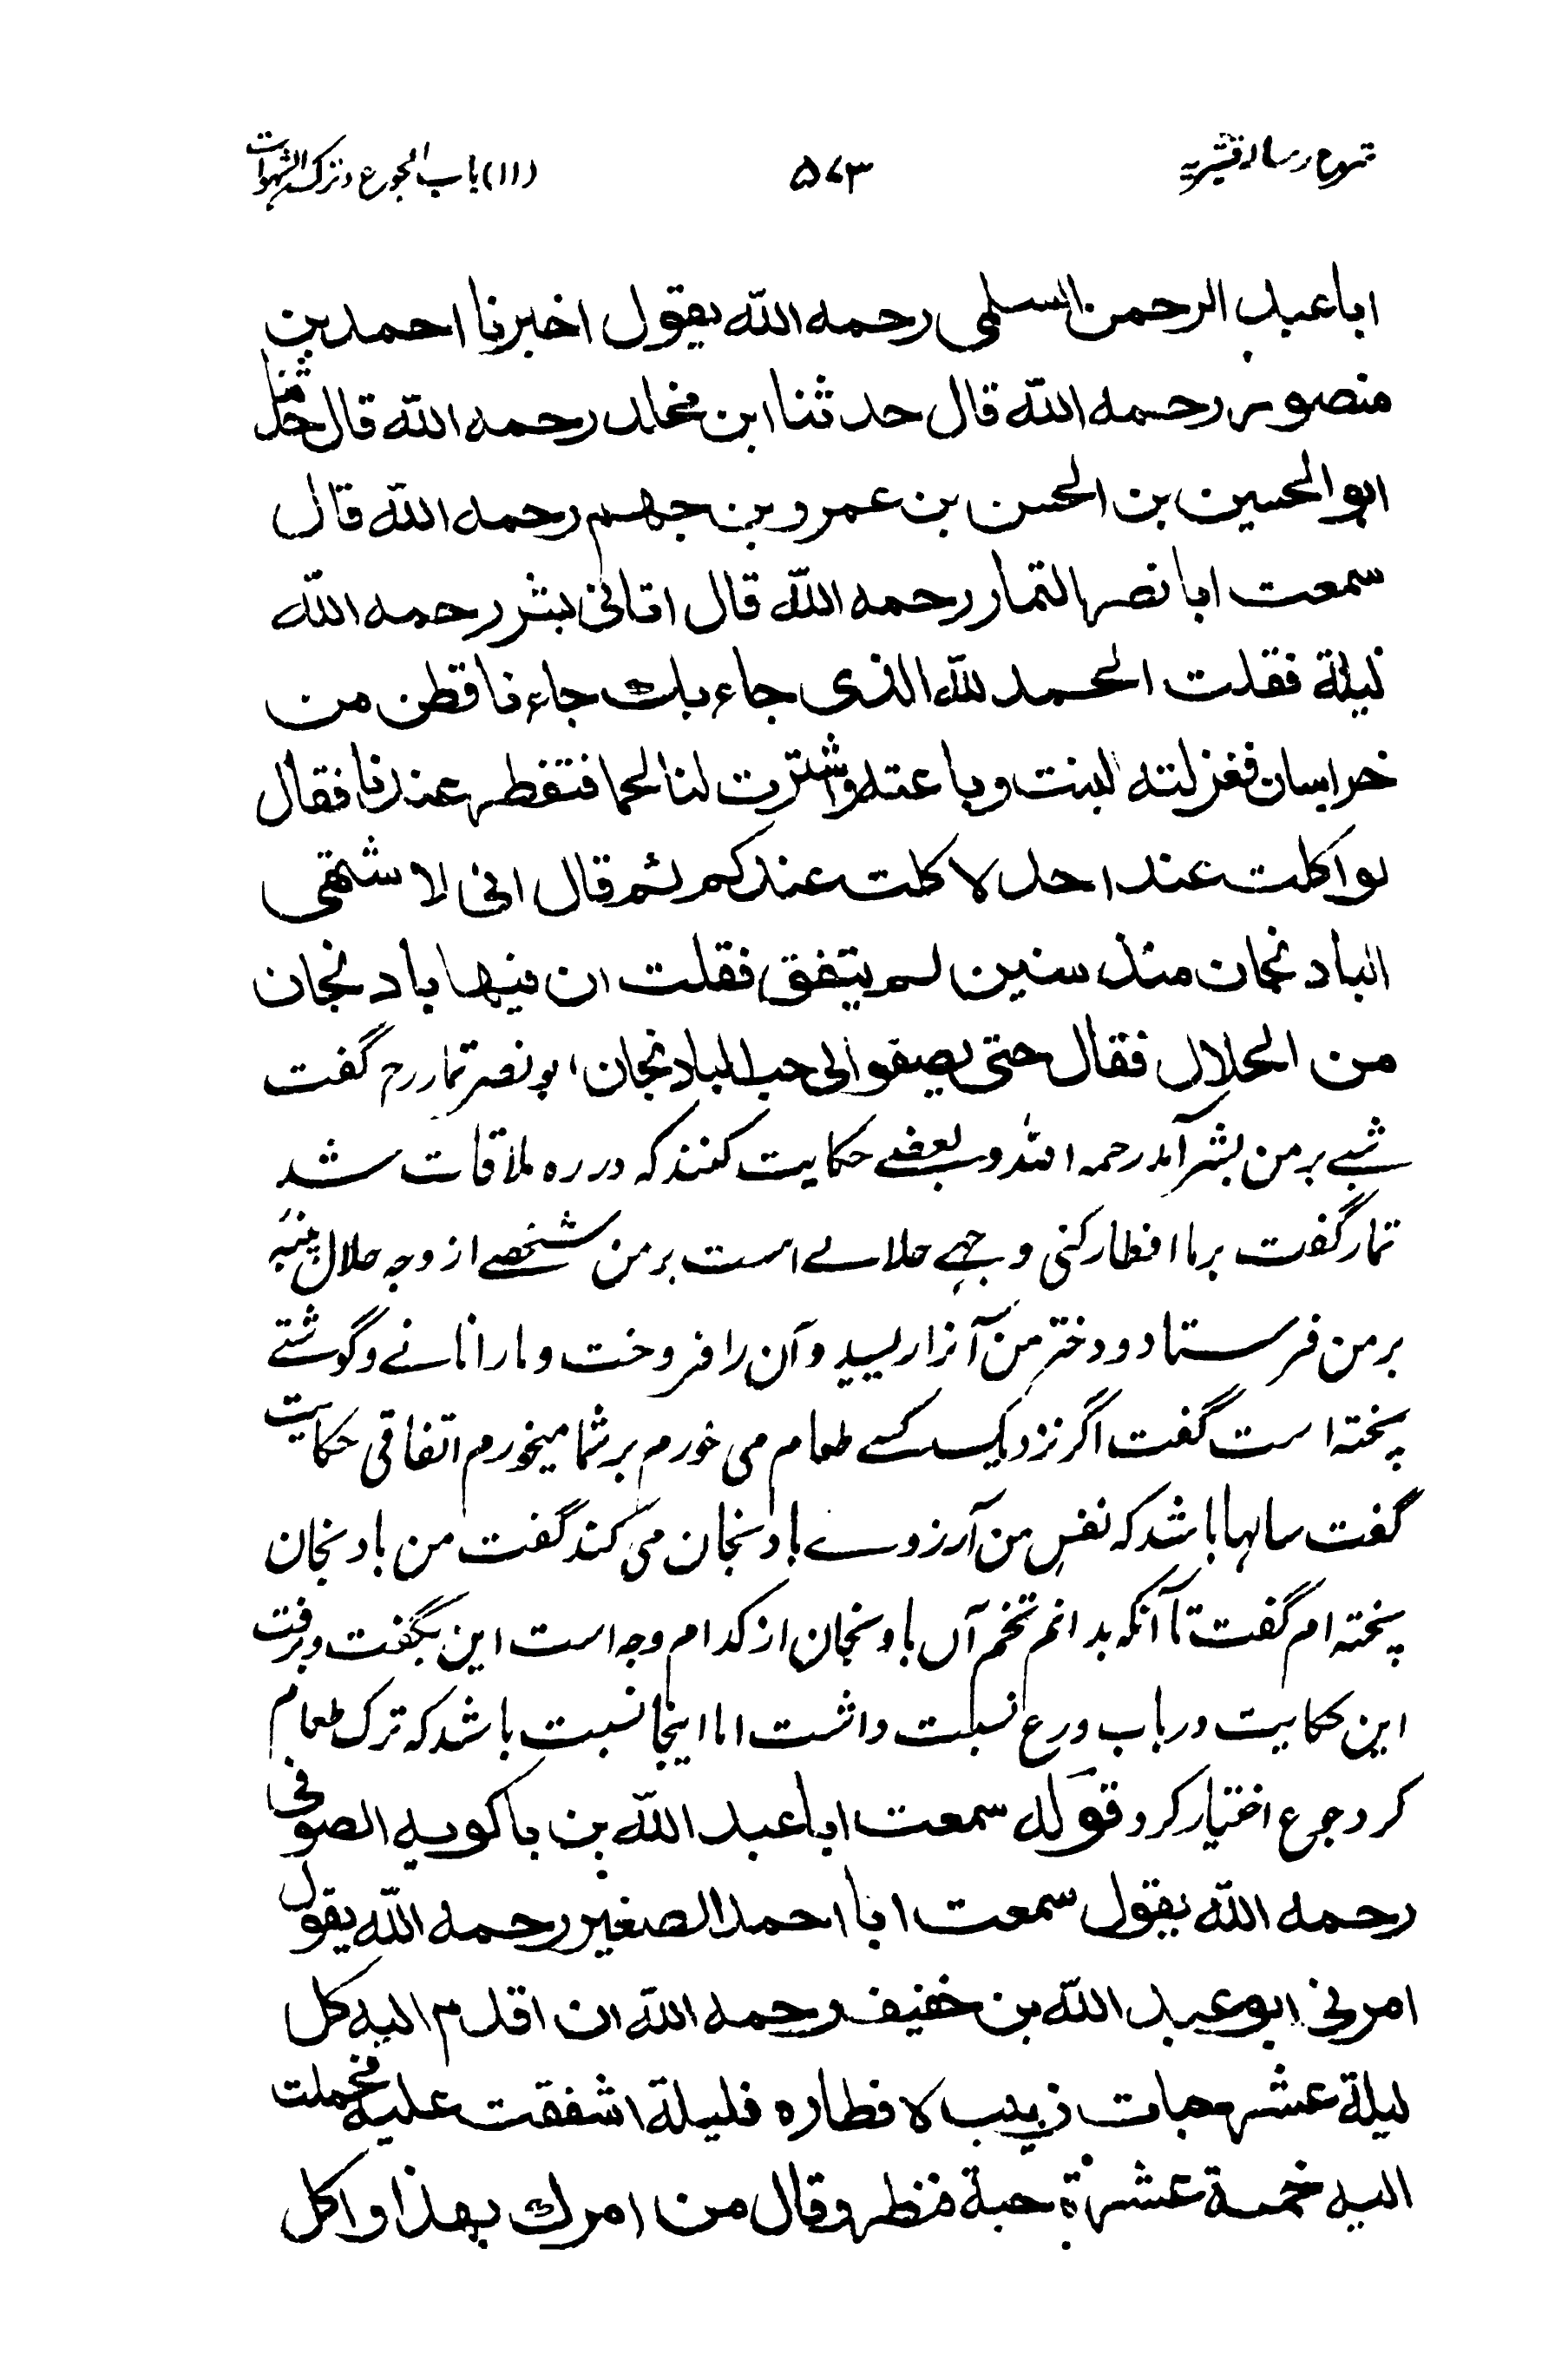 شروح رسالہ قشیریہ ۵۷۳ (۱۱) باب الجوع وترک الشهوات
اباعبد الرحمن السلمی رحمه اللّٰه یقول اخبرنا احمد بن
منصور رحمه اللّٰه قال حدثنا ابن مخلد رحمه اللّٰه قال حدثنا
ابو الحسین بن الحسن بن عمرو بن جهم رحمه اللّٰه قال
سمعت ابا نصر التمار رحمه اللّٰه قال اتانی بشر رحمه اللّٰه
لیلة فقلت الحمد للّٰه الذی جاء بك جاءنا قطن من
خراسان فغزلته البنت وباعته واشترت لنا لحما فتفطر عندنا فقال
لو اکلت عند احد لاکلت عندکم ثم قال انی لاشتهی
الباد نجان منذ سنین لم یتفق فقلت ان فیها باد نجان
من الحلال فقال حتی یصفو لی حب الباد نجان ابو نصر تمار رح گفت
شبے بر من بشر آمد رحمه اللّٰه وبعضے حکایت کنند که در ره ملاقات شد
تمار گفت بر ما افطار کنی وجهے حلالے است بر من شخصے از وجه حلال پنبه
بر من فرستاد ودختر من آنرا ریسید وآن را فروخت ومارا نانے وگوشتے
پخته است گفت اگر نزدیک کسے طعام می خوردم بر شما میخوردم اتفاقی حکایت
گفت سالها باشد که نفس من آرزوے بادنجان می کند گفت من بادنجان
پخته ام گفت تا آنکه بدانم تخم آں بادنجان از کدام وجه است این بگفت وبرفت
این حکایت در باب ورع نسبت داشت اما اینجا نسبت باشد که ترک طعام
کرد جوع اختیار کرد قوله سمعت اباعبد اللّٰه بن باکویه الصوفی
رحمه اللّٰه یقول سمعت ابا احمد الصغیر رحمه اللّٰه یقول
امرنی ابو عبد اللّٰه بن خفیف رحمه اللّٰه ان اقدم الیه کل
لیلة عشر حبات زبیب لافطاره فلیلة اشفقت علیه فحملت
الیه خمسة عشرة حبة فنظر وقال من امرك بهذا واکل